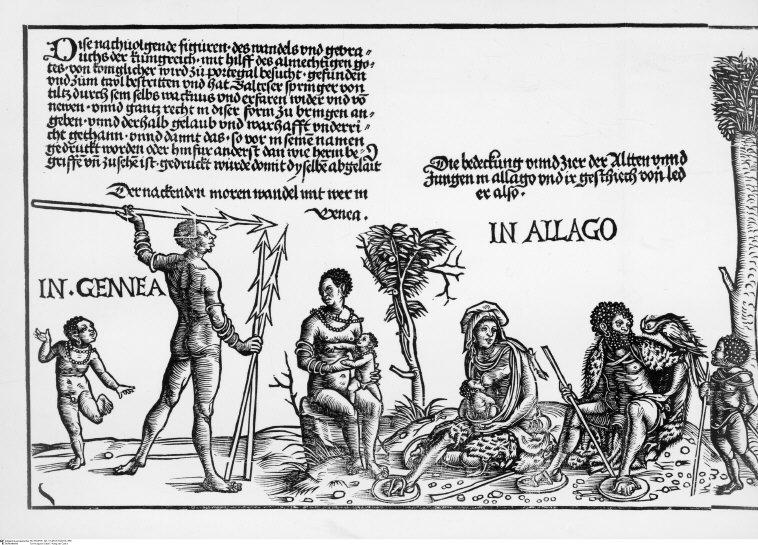 Dise nachuolgende figuren · des wandels vnd gebra-
uchs der kunigreich · mit hilff des almechtigen go-
tes · von koniglicher wird zu portegal besucht · gefunden
vnd zum tayl bestritten vnd hat Balteser springer von
viltz durch sein selbs wacknus vnd erfaren wider vnd von
newen · vnnd gantz recht in diser form zu bringen an-
geben · vnnd derhalb gelaub vnd warhafft vnderri-
cht gethann · vnnd damit das · so vor in seine namen
gedruckt worden oder hinfur anderst dan wie hierin be-
griffe vn zusehe ist · gedruckt wurde domit dyselbe abgelait
Der nackenden moren wandel mit wer in
Gennea ·
IN · GENNEA
Die bedeckung vnnd zier der Altten vnnd
Jungen in allago vnd ir geschiech von led
er also ·
IN ALLAGO